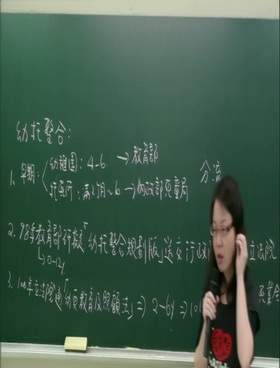 幼托整合:
1. 早期 幼稚園: 4~6 → 教育部 分流
托兒所: 滿1月~6 → 內政部兒童局
2. 98年教育部研擬「幼托整合規劃版」送交行政 立法院
↳ 0~12y
3. 100年立法院 「幼兒教育及照顧法」 ⇒ 2~6y ⇒ 101